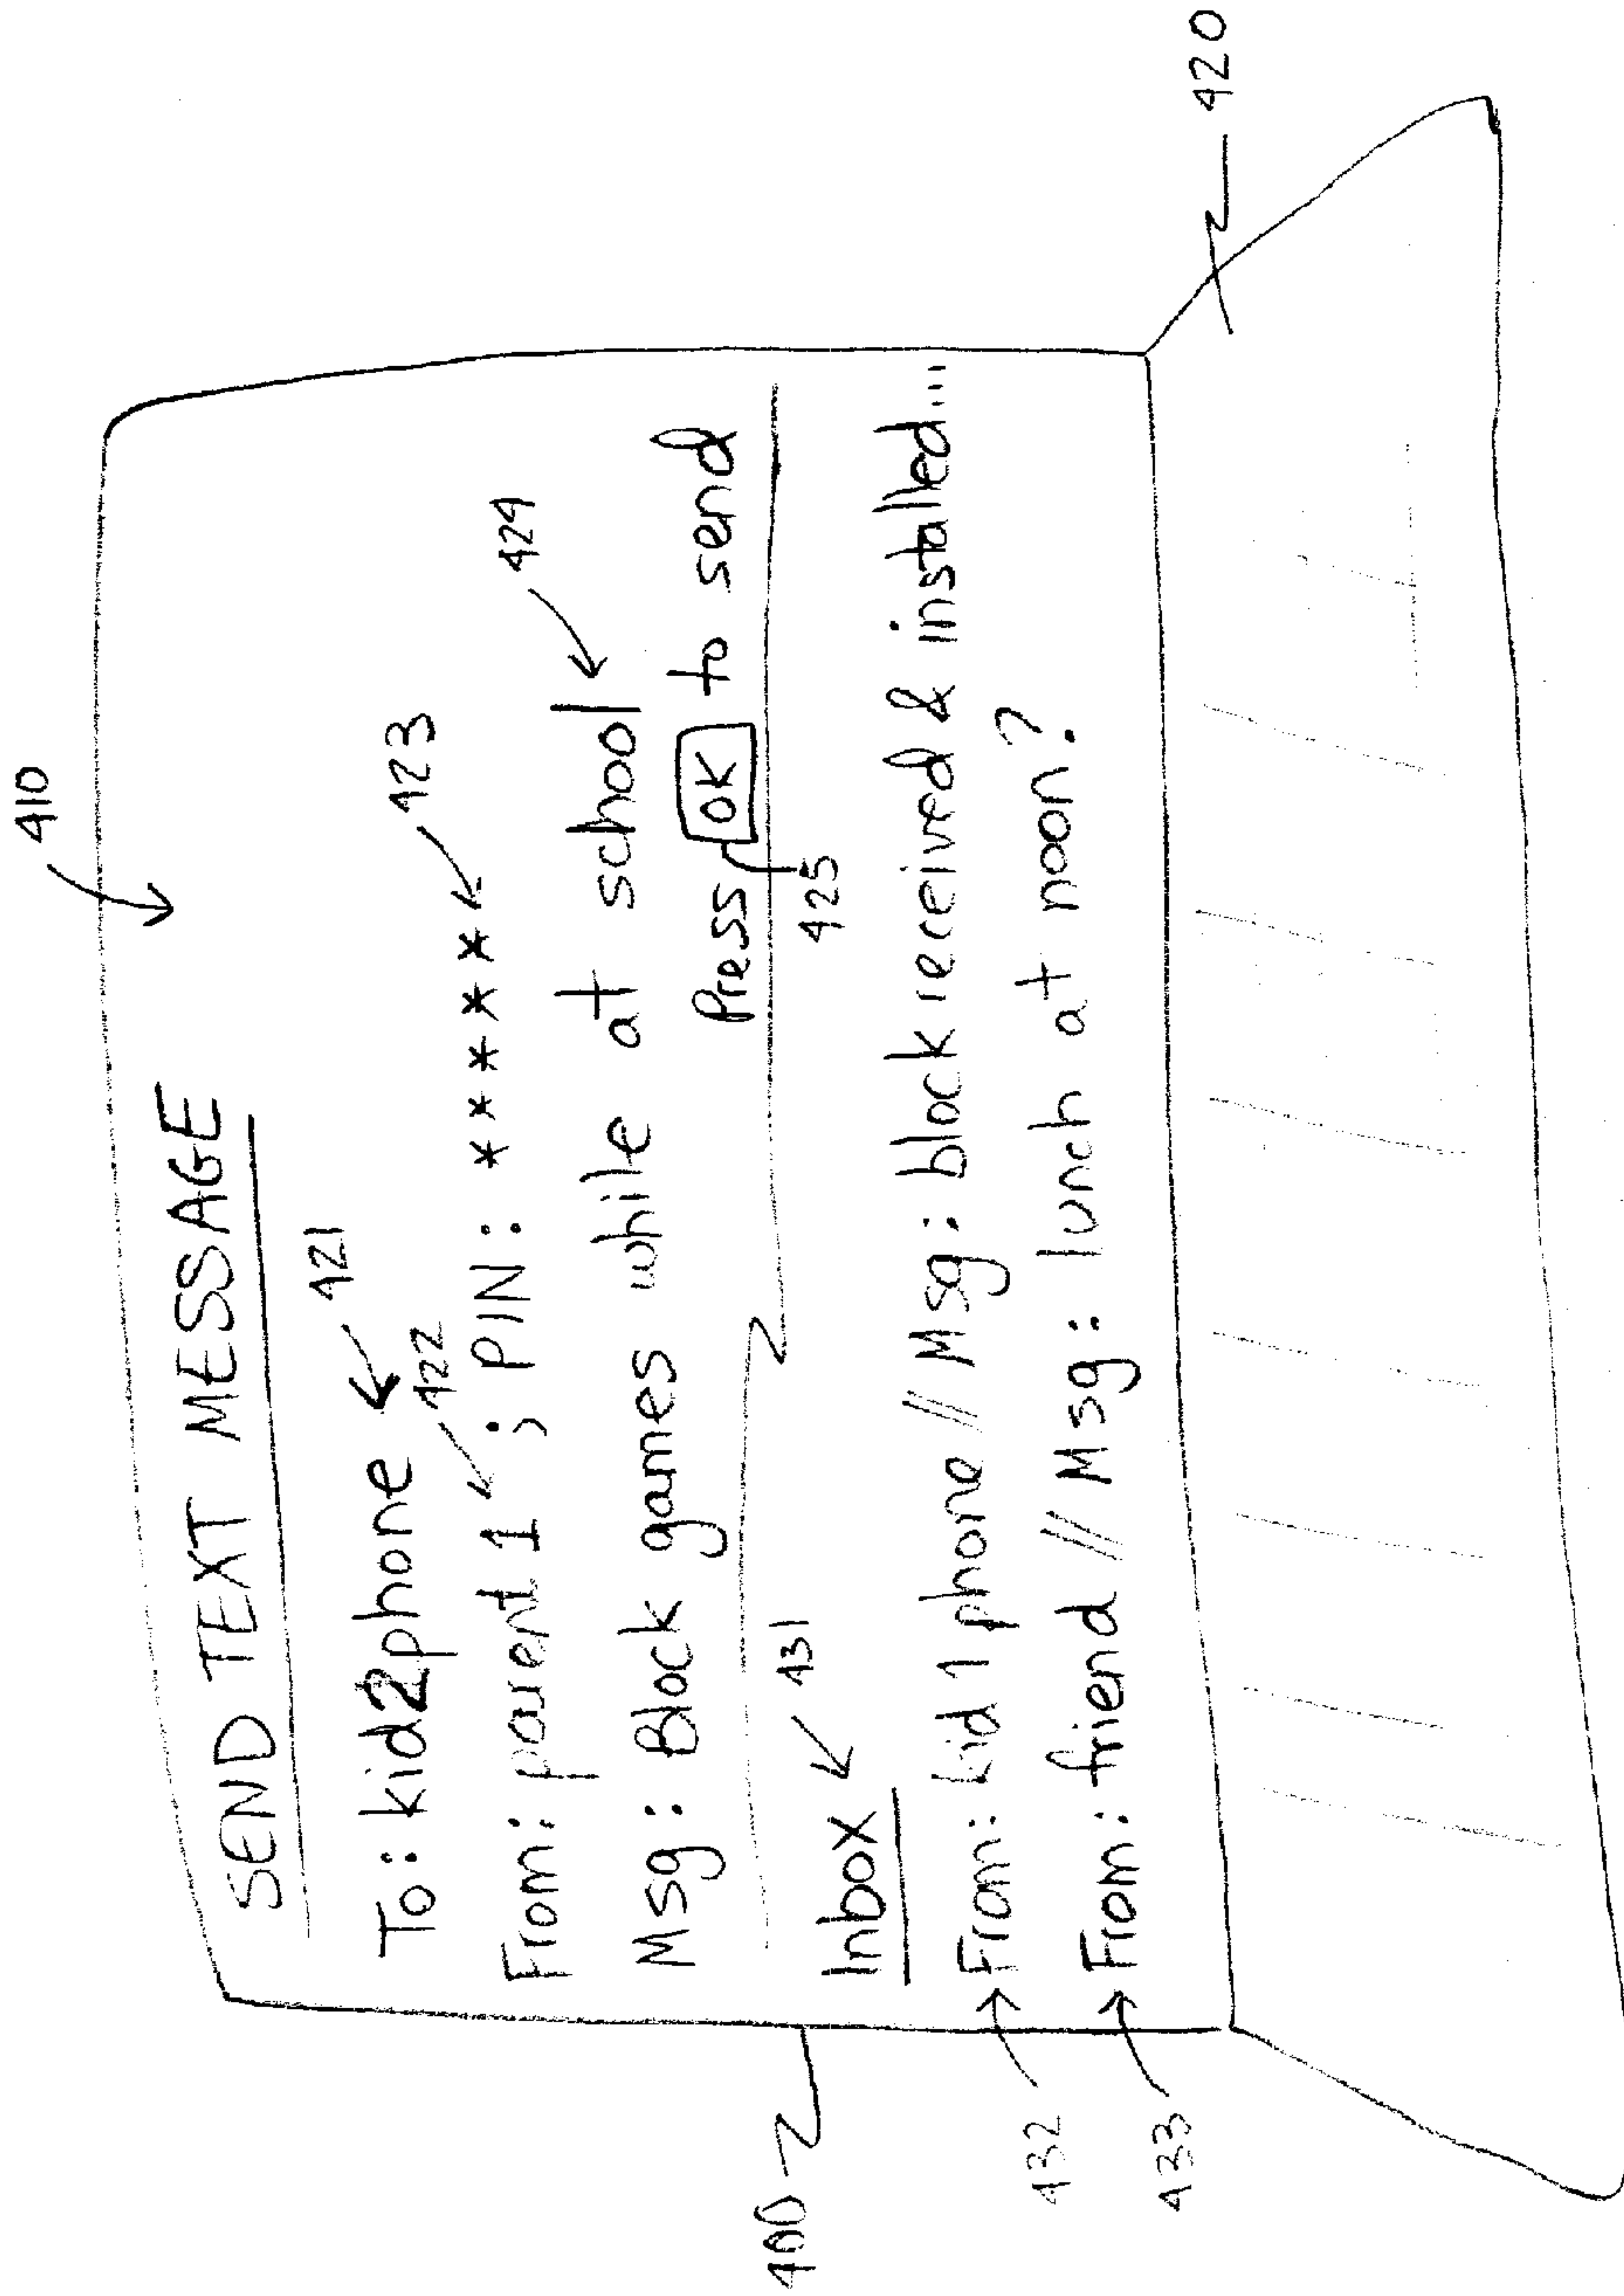 410
SEND TEXT MESSAGE
To: kid2phone 421
422
From: parent 1 ; PIN: ****** 423
Msg: Block games while at school 424
Press OK to send
425
400
Inbox 431
432 From: kid 1 phone // Msg: block received & installed...
433 From: friend // Msg: lunch at noon?
420